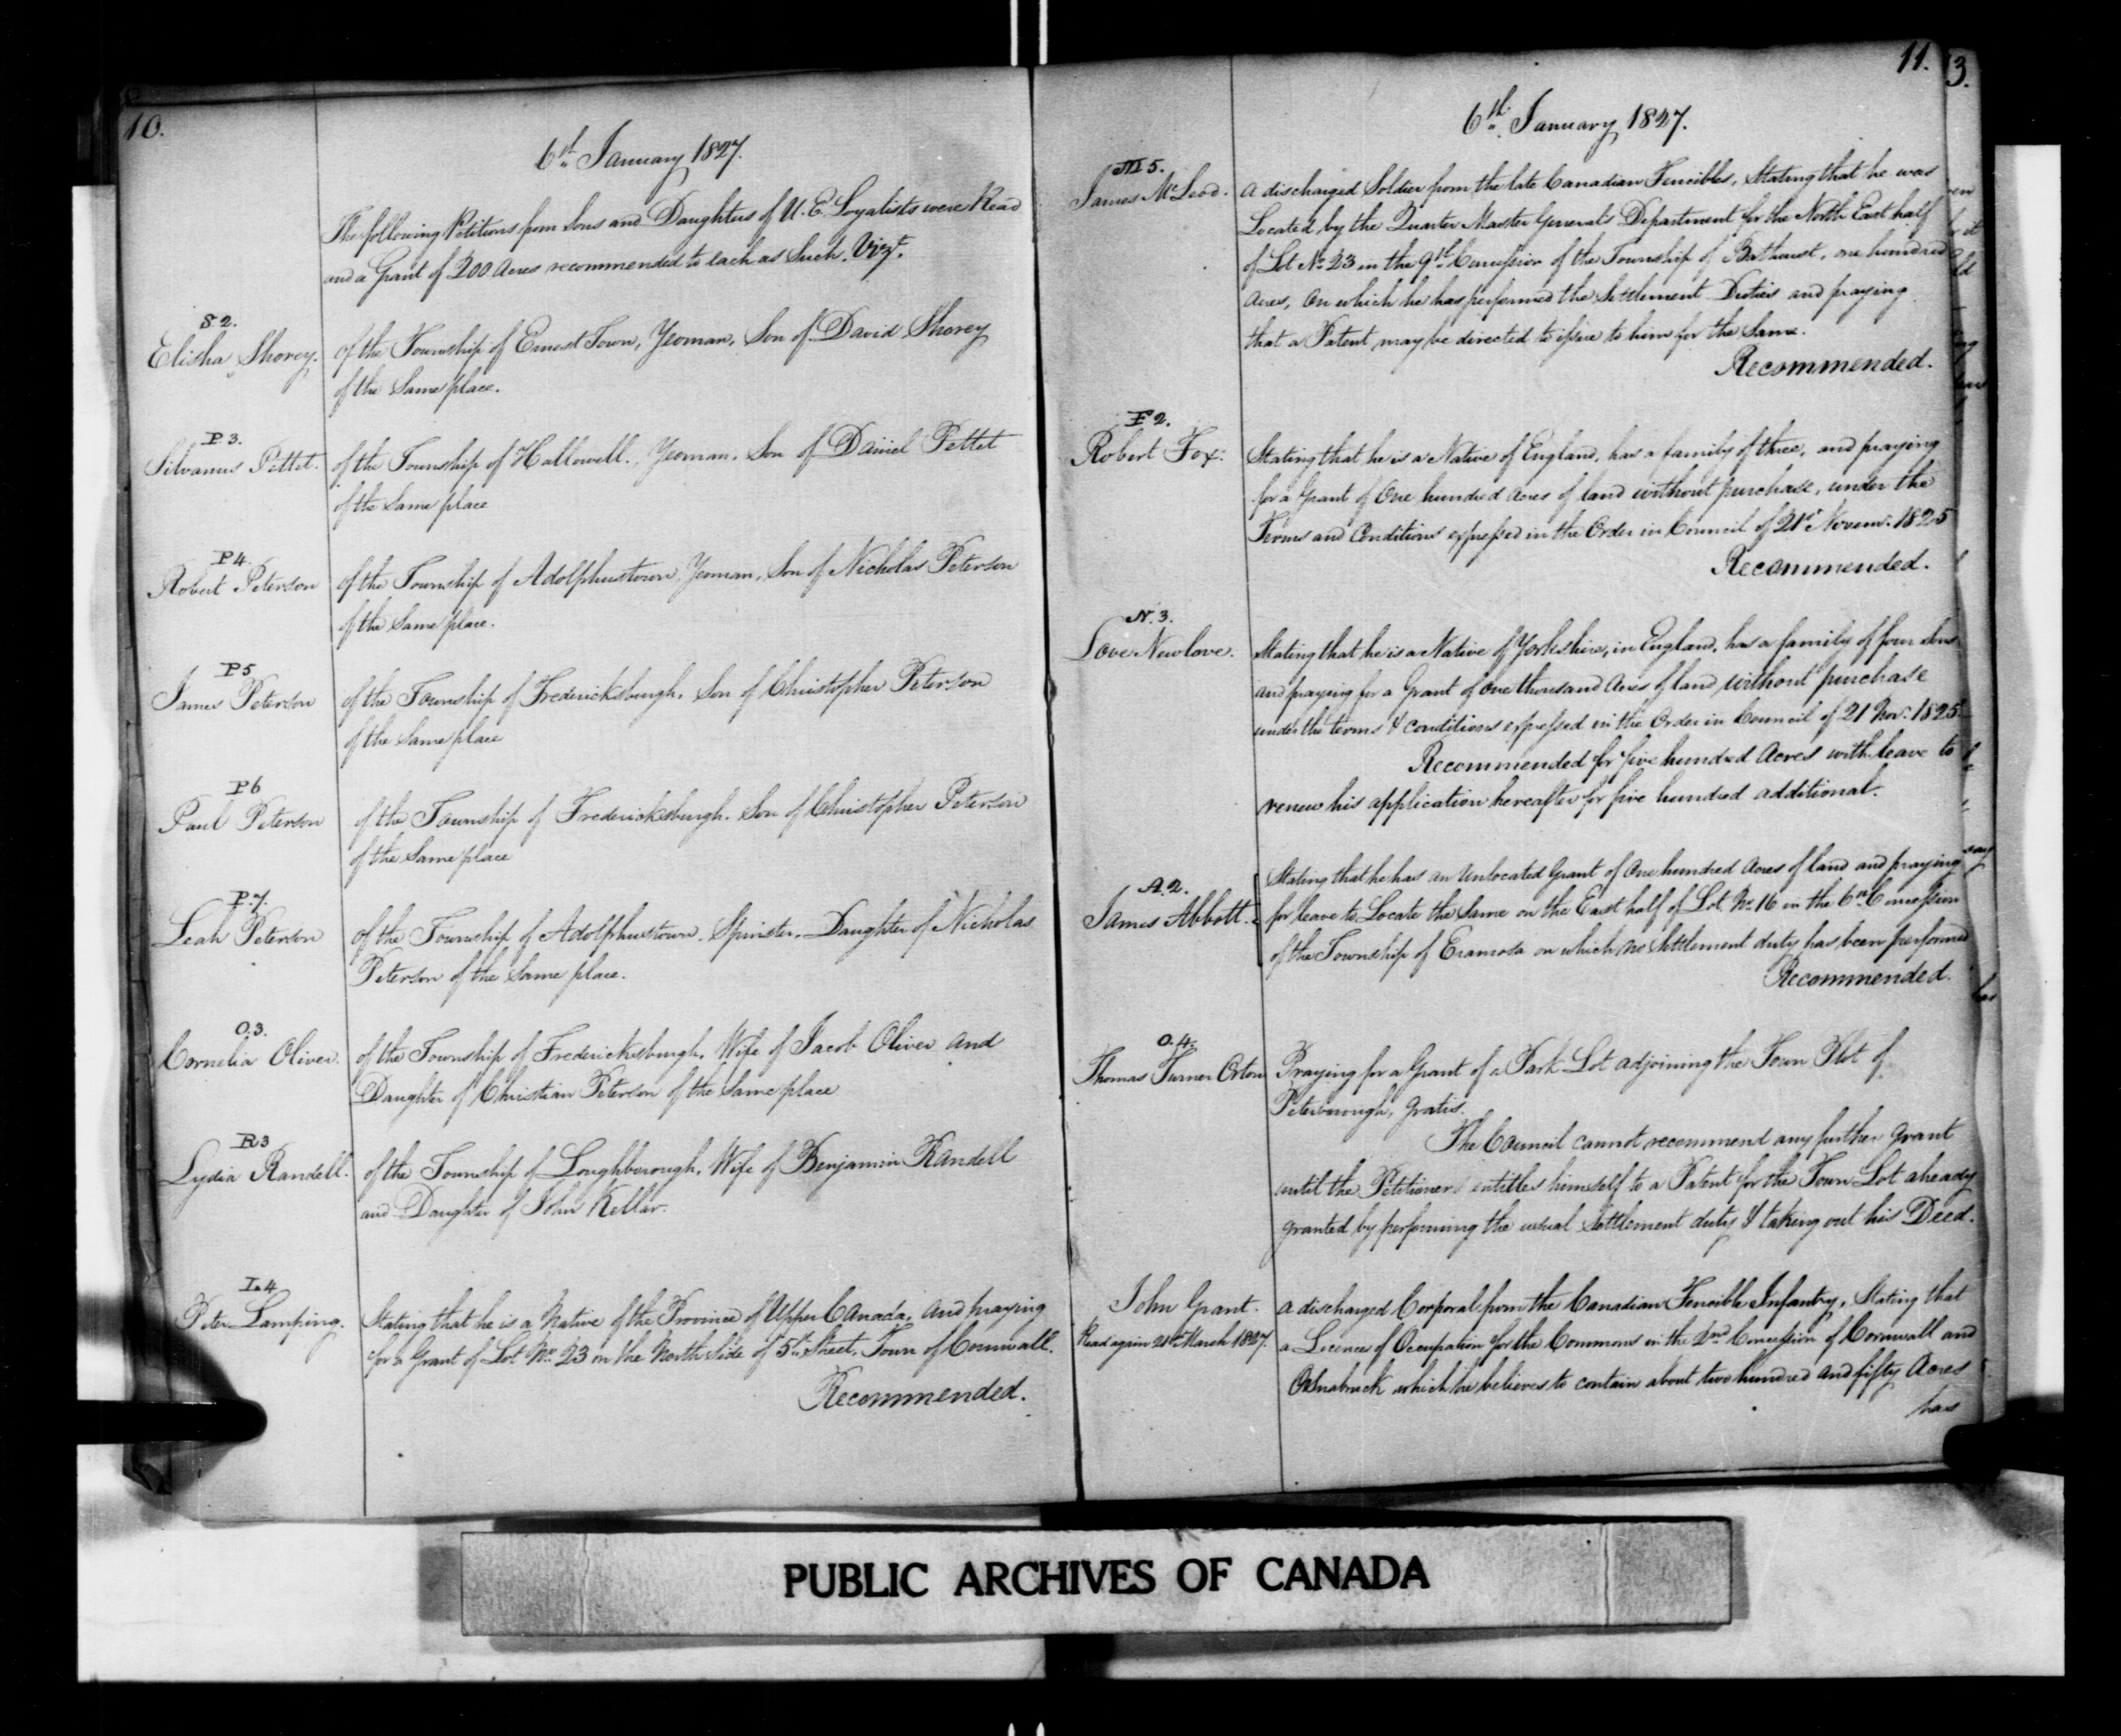 10.
6th January 1827.
The following Petitions from Sons and Daughters of U. E. Loyalists were Read
and a Grant of 200 Acres recommended to each as Such. Vizt.
S 2.
Elisha Shorey. of the Township of Ernest Town, Yeoman, Son of David Shorey
of the Same place.
P 3.
Silvanus Pettet. of the Township of Hallowell, Yeoman. Son of Daniel Pettet
of the Same place
P 4.
Robert Peterson of the Township of Adolphustown, Yeoman, Son of Nicholas Peterson
of the Same place.
P 5
James Peterson of the Township of Fredericksburgh. Son of Christopher Peterson
of the Same place
P 6
Paul Peterson of the Township of Fredericksburgh. Son of Christopher Peterson
of the Same place
P. 7.
Leah Peterson of the Township of Adolphustown. Spinster. Daughter of Nicholas
Peterson of the Same place.
O. 3.
Cornelia Oliver. of the Township of Fredericksburgh. Wife of Jacob Oliver and
Daughter of Christian Peterson of the Same place
R 3
Lydia Randell. of the Township of Loughborough. Wife of Benjamin Randell
and Daughter of John Kellar.
L. 4
Peter Lamping. Stating that he is a Native of the Province of Upper Canada, and praying
for a Grant of Lot No. 23 on the North Side of 5th Street, Town of Cornwall.
Recommended.
11.
3.
6th January 1827.
M 5.
James McLeod. A discharged Soldier from the late Canadian Fencibles, Stating that he was
Located by the Quarter Master General's Department for the North East half
of Lot No 23 in the 9th Concession of the Township of Bathurst, one hundred
Acres, On which he has performed the Settlement Duties and praying
that a Patent may be directed to issue to him for the Same.
Recommended.
F 2.
Robert Fox. Stating that he is a Native of England, has a family of three, and praying
for a Grant of One hundred Acres of land without purchase, under the
Terms and Conditions expressed in the Order in Council of 21st Novemr. 1825
Recommended.
N. 3.
Love Newlove. Stating that he is a Native of Yorkshire, in England, has a family of four Sons
and praying for a Grant of One thousand Acres of land without purchase
under the terms & conditions expressed in the Order in Council of 21 Nov. 1825.
Recommended for five hundred Acres with leave to
renew his application hereafter for five hundred additional.
A. 2.
James Abbott. Stating that he has an Unlocated Grant of One hundred Acres of land and praying
for leave to Locate the Same on the East half of Lot No 16 in the 6th Concession
of the Township of Eramosa on which no Settlement duty has been performed
Recommended.
O. 4.
Thomas Turner Orton Praying for a Grant of a Park Lot adjoining the Town Plot of
Peterborough, Gratis.
The Council cannot recommend any further grant
until the Petitioner entitles himself to a Patent for the Town Lot already
granted by performing the usual Settlement duty & taking out his Deed.
John Grant. A discharged Corporal from the Canadian Fencible Infantry, Stating that
Read again 21st March 1827. a Licence of Occupation for the Commons in the 2nd Concession of Cornwall and
Osnabruck which he believes to contain about two hundred and fifty Acres
has
PUBLIC ARCHIVES OF CANADA